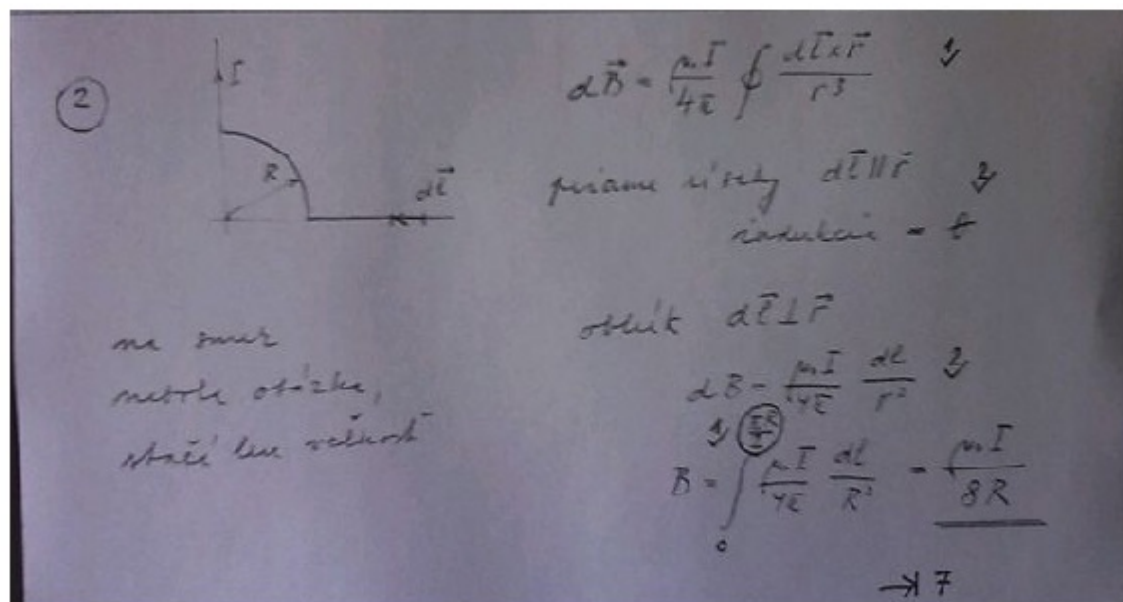 ②
I
R
dl⃗
dB⃗ = μ₀I/4π ∮ dl⃗×r⃗/r³ 1
priame úseky dl⃗ ∥ r⃗ 2
indukcia = 0
oblúk dl⃗ ⊥ r⃗
dB = μ₀I/4π dl/r² 2
1 B = ∫₀^(πR/2) μ₀I/4π dl/R² = μ₀I/8R
→ 7
na smer
nebola otázka,
stačí len veľkosť